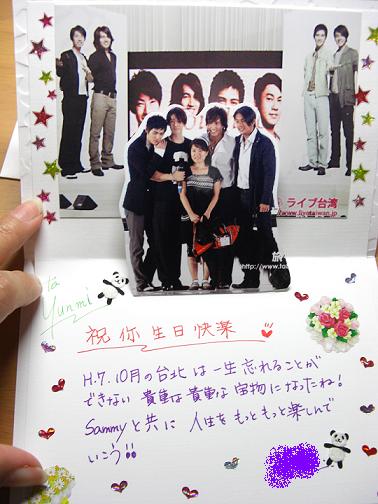 ライブ台湾
to
Yunmi
祝你生日快楽
H.7.10月の台北は一生忘れることが
できない貴重な貴重な宝物になったね!
Sammyと共に 人生をもっともっと楽しんで
いこう!!